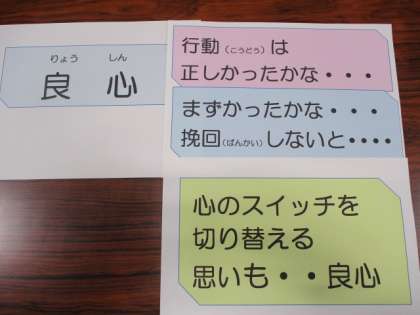 りょう しん
良 心
行動（こうどう）は
正しかったかな・・・
まずかったかな・・・
挽回（ばんかい）しないと・・・・
心のスイッチを
切り替える
思いも・・良心